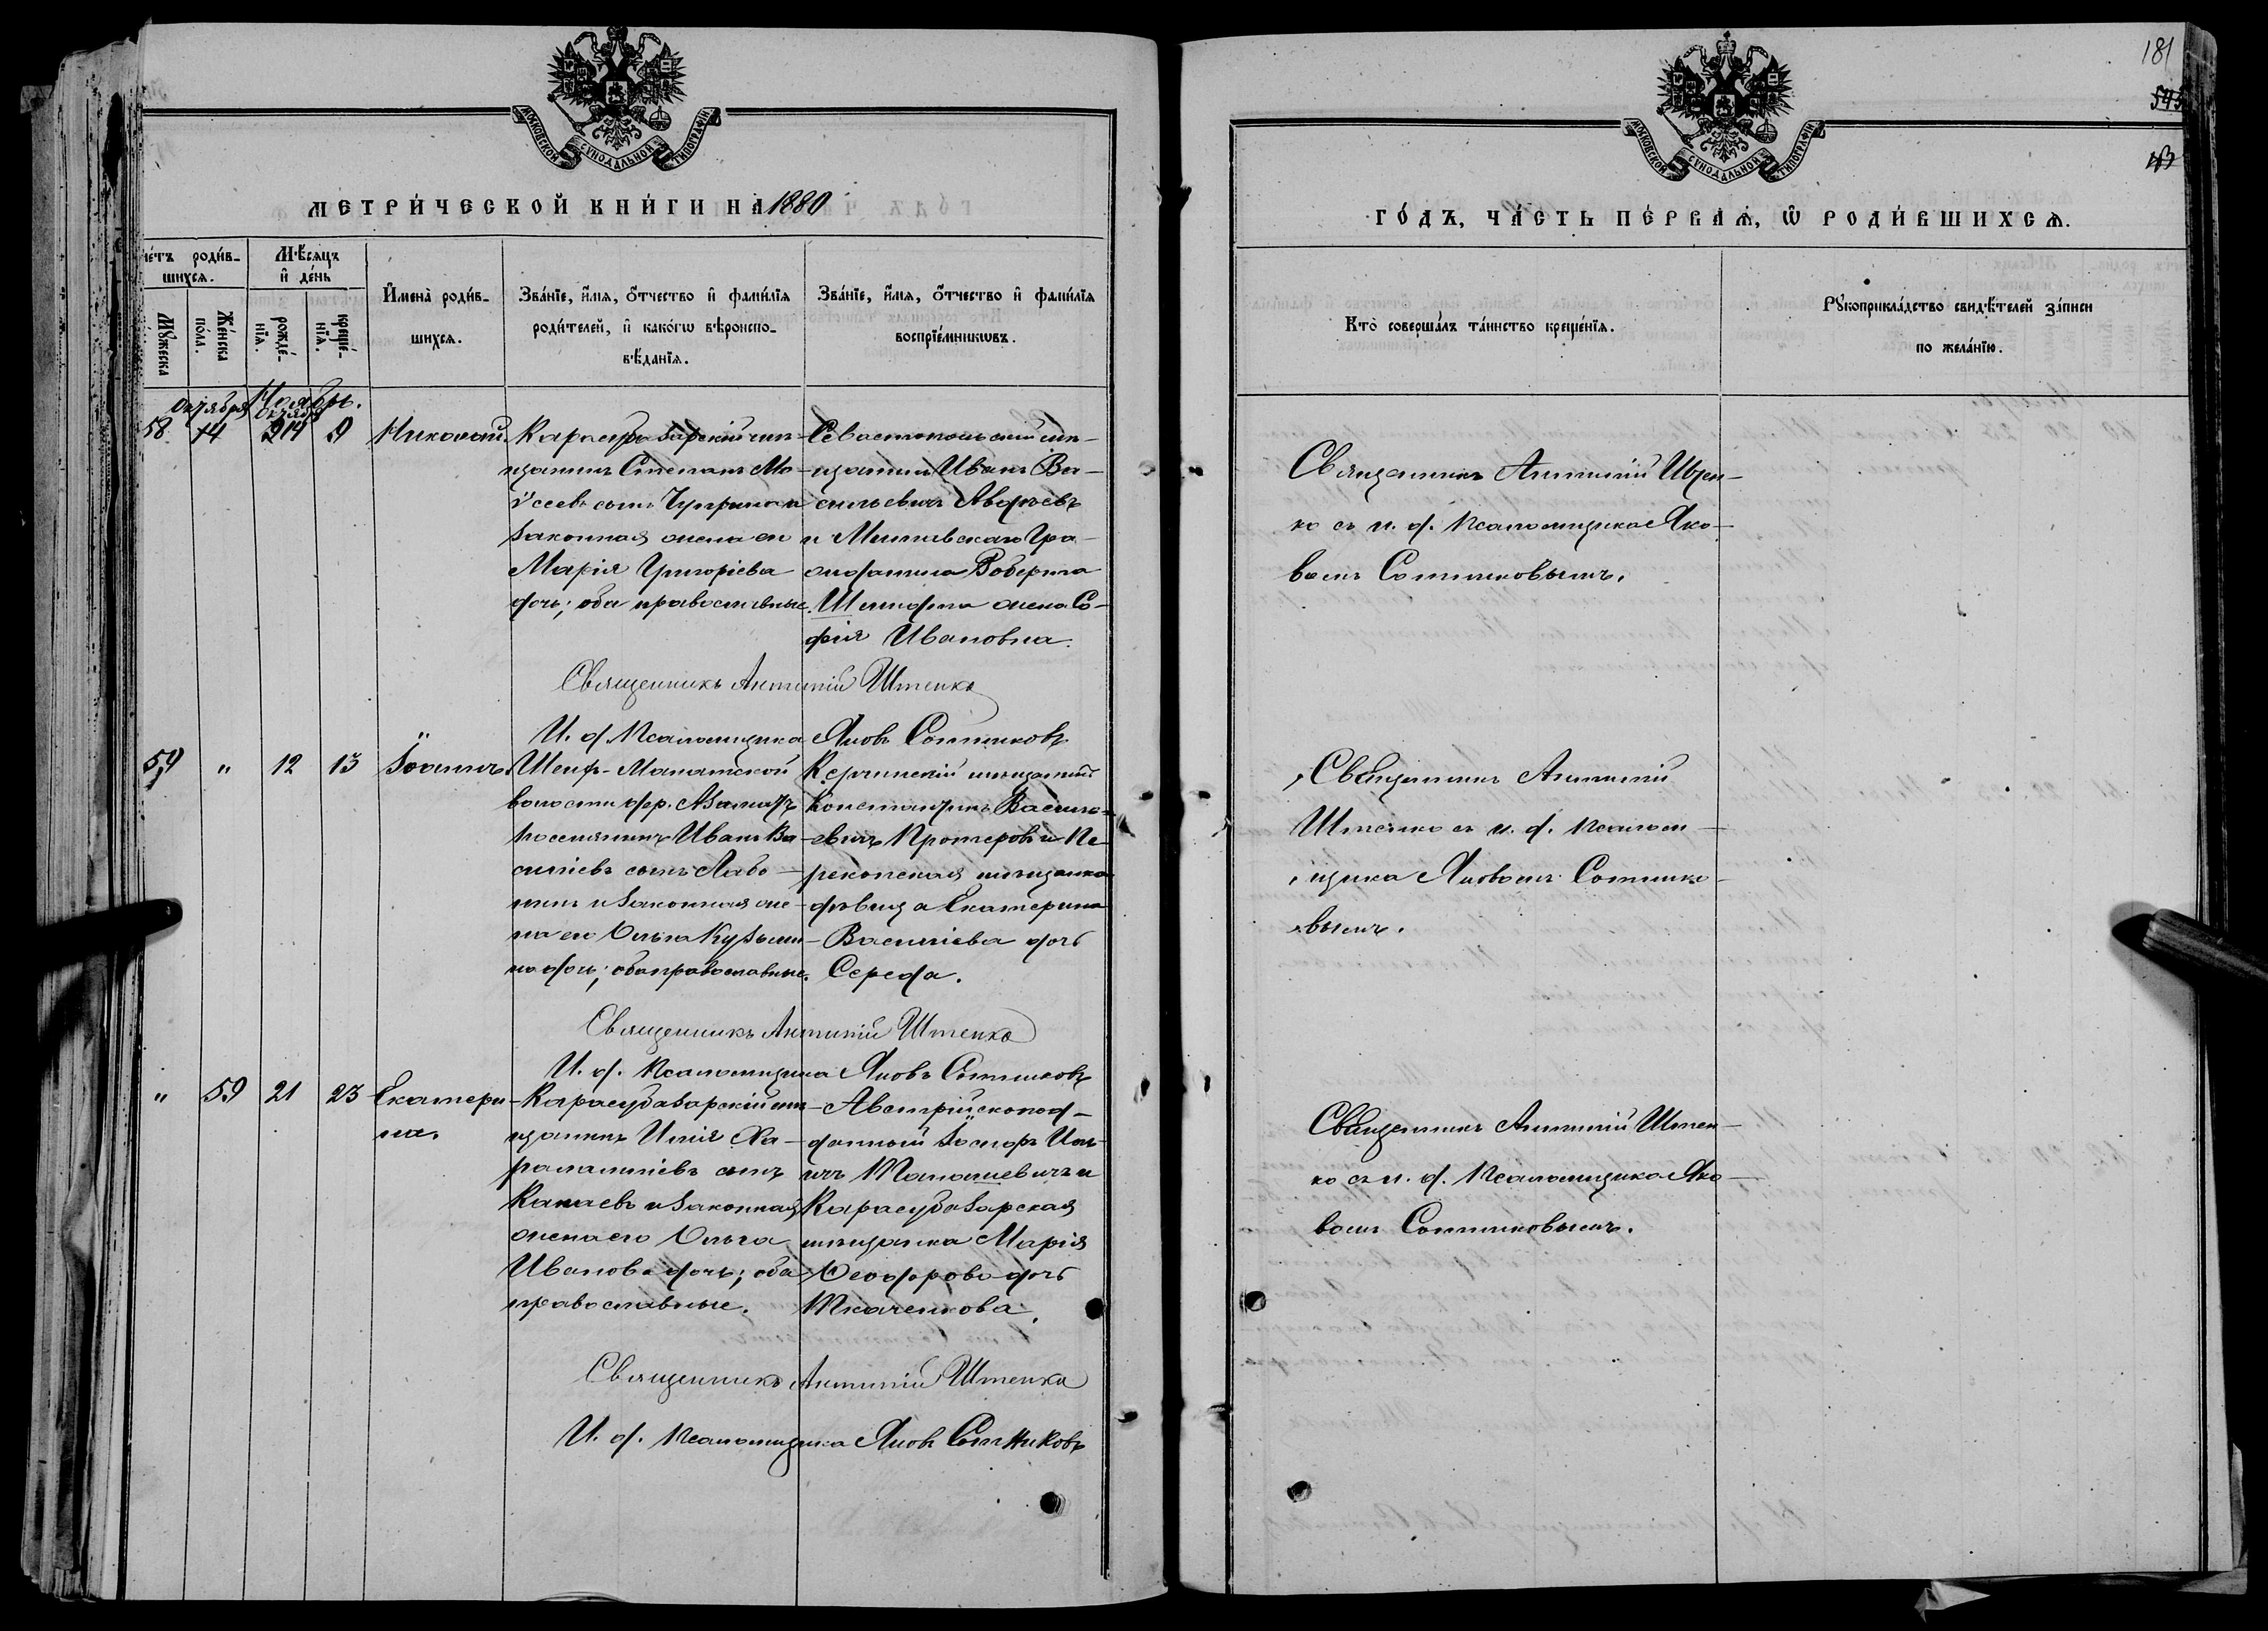 МОСКОВСКОЙ СѴНОДАЛЬНОЙ ТИПОГРАФІИ
МЕТРИ́ЧЕСКОЙ КНИ́ГИ НА 1880
че́тъ роди́в-
шихся.
Мѣ́сяцъ
и҆ де́нь
Мꙋ́жеска
Же́нска
пола.
рожде́-
нїя.
креще́-
нїя.
И҆мена̀ роди́в-
шихся.
Зва́нїе, и҆́мя, ѻ҆́тчество и҆ фамі́лїя
роди́телей, и҆ како́гѡ вѣроиспо-
вѣ́данїя.
Зва́нїе, и҆́мя, ѻ҆́тчество и҆ фамі́лїя
воспрїе́мникѡвъ.
Октября Ноябрь.
Октября
58 14 9 Николай.
Карасубазарскій мѣ-
щанинъ Степанъ Мо-
ѵсеевъ сынъ
законная жена его
Марія Григоріева
дочь; оба православные.
Севастопольскій мѣ-
щанинъ Иванъ Ва-
сильевичъ
и Митавскаго Гра-
жданина Роберта
жена Со-
фія Ивановна.
Священникъ Антиній Штенко
И. д. Псаломщика Яковъ Сотниковъ
59 " 12 13 Іоаннъ.
Шейх-Монахской
волости дер. Азаматъ
поселянинъ Иванъ Ва-
силіевъ сынъ
и законная же-
на его Ольга Кузьми-
на дочь; оба православные.
Керчинскій мѣщанинъ
Константинъ Василь-
евичъ Протеровъ и Пе-
рекопская мѣщанка
дѣвица Екатерина
Василіева дочь
Середа.
Священникъ Антиній Штенко
И. д. Псаломщика Яковъ Сотниковъ
" 59 21 23 Екатери-
на.
Карасубазарскій мѣ-
щанинъ Илія Ха-
рлампіевъ сынъ
Канаевъ и законная
жена его Ольга
Иванова дочь; оба
православные.
Австрійскоподд-
данный Іосифъ
и
Карасубазарская
мѣщанка Марія
Ѳеодорова дочь
Ткаченкова.
Священникъ Антиній Штенко
И. д. Псаломщика Яковъ Сотниковъ
181
545
МОСКОВСКОЙ СѴНОДАЛЬНОЙ ТИПОГРАФІИ
ГО́ДЪ, ЧА́СТЬ ПЕ́РВАЯ, Ѡ҆ РОДИ́ВШИХСЯ.
Кто̀ соверша́лъ та́инство креще́нїя.
Рꙋкоприкла́дство свидѣ́телей за́писи
по жела́нїю.
Священникъ Антиній Штен-
ко съ и. д. Псаломщика Яко-
вомъ Сотниковымъ.
Священникъ Антиній
Штенко съ и. д. Псалом-
щика Яковомъ Сотнико-
вымъ.
Священникъ Антиній Штен-
ко съ и. д. Псаломщика Яко-
вомъ Сотниковымъ.